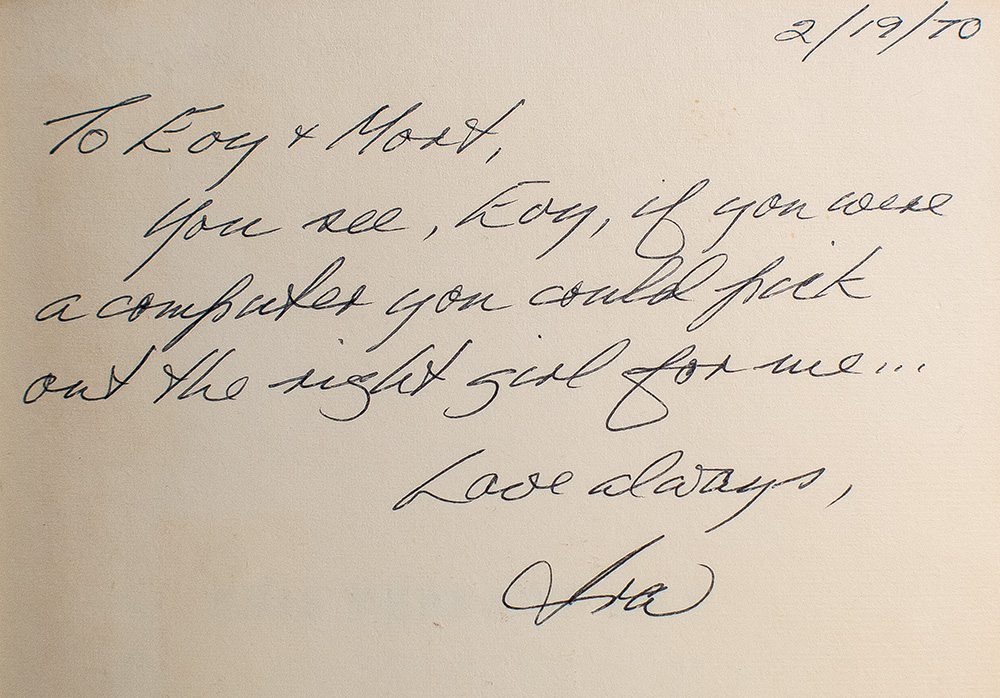 2/19/70
To Eoy & Mort,
You see, Eoy, if you were
a computer you could pick
out the right girl for me...
Love always,
Ira